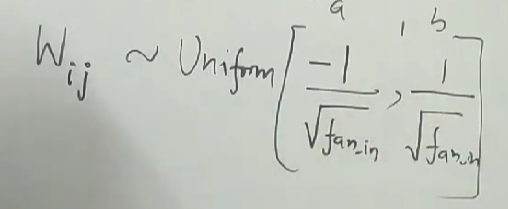 a , b
W_ij ~ Uniform [ -1/√fan_in , 1/√fan_in ]